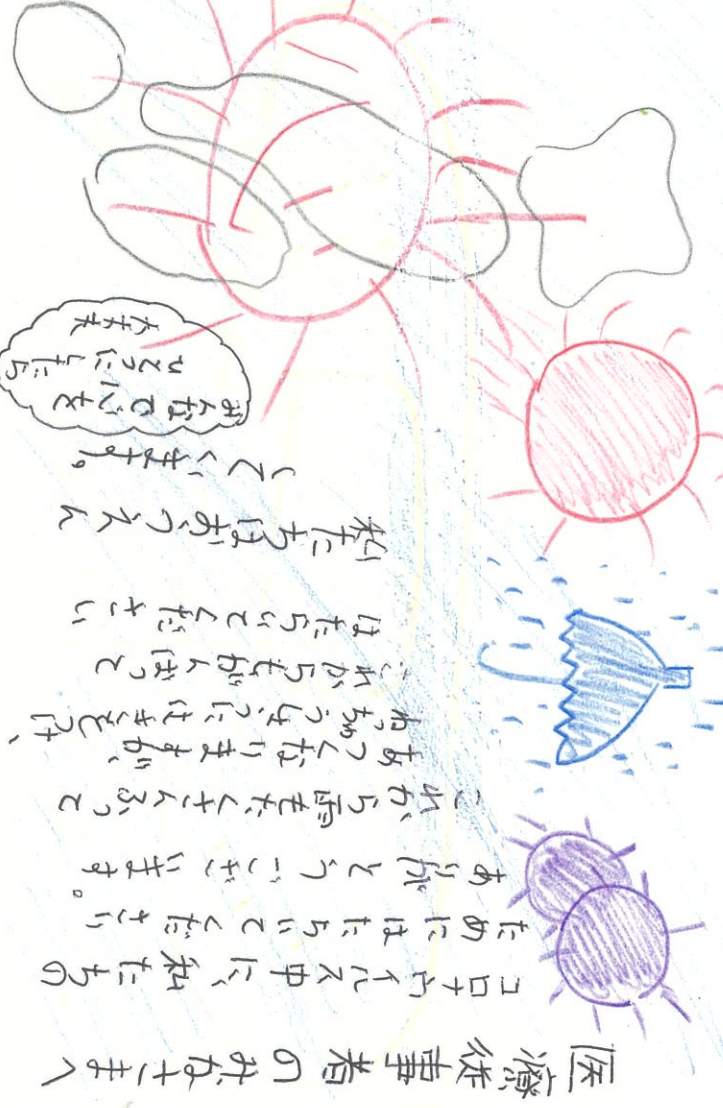 医療従事者のみなさまへ
コロナウイルス中に、私たちの
ためにはたらいてくださり
ありがとうございます。
これから雨もたくさんふって
あつくなりますが、
ねっちゅうしょうにはきをつけ、
これからもがんばって
はたらいてください
私たちはおうえん
しています。
みんなで心を
ひとつにしたら
大丈夫